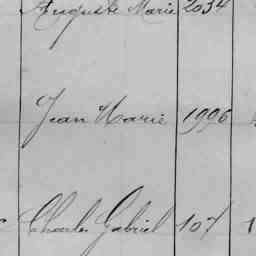 Auguste Marie 2034
Jean Marie 1996
Charles Gabriel 107